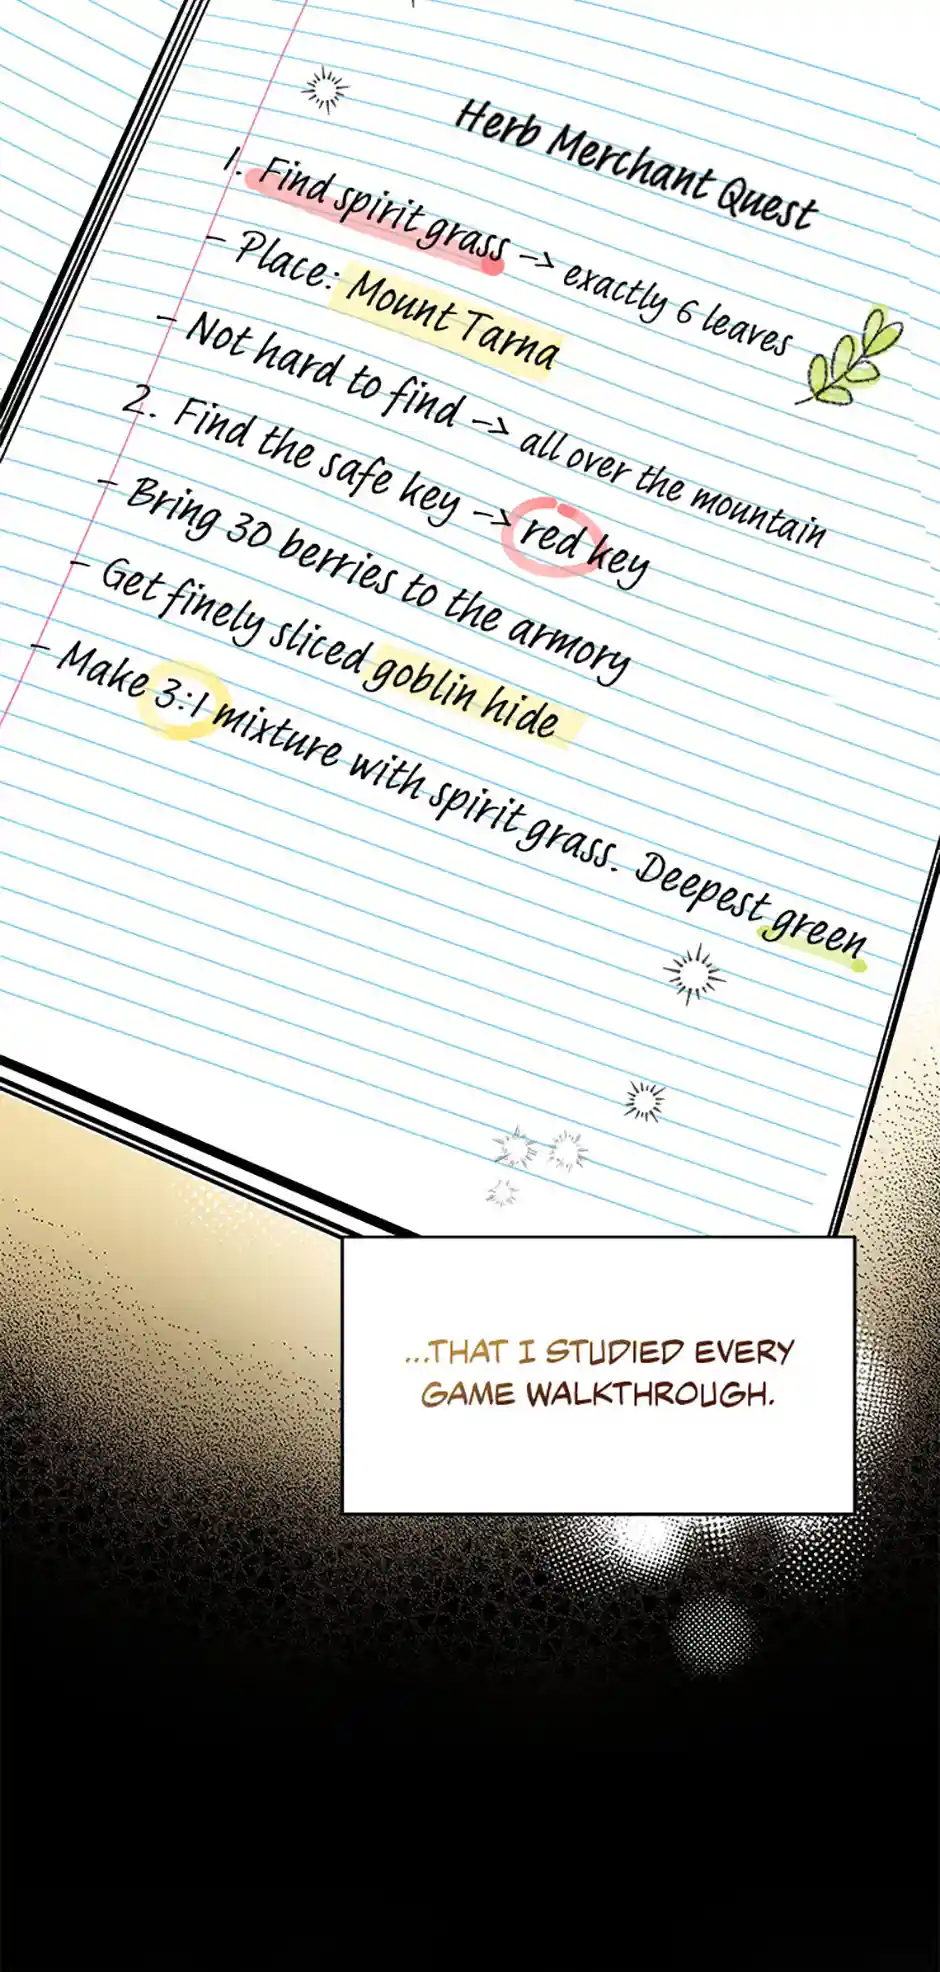 Herb Merchant Quest
1. Find spirit grass -> exactly 6 leaves
- Place: Mount Tarna
- Not hard to find -> all over the mountain
2. Find the safe key -> red key
- Bring 30 berries to the armory
- Get finely sliced goblin hide
- Make 3:1 mixture with spirit grass. Deepest green
...THAT I STUDIED EVERY
GAME WALKTHROUGH.